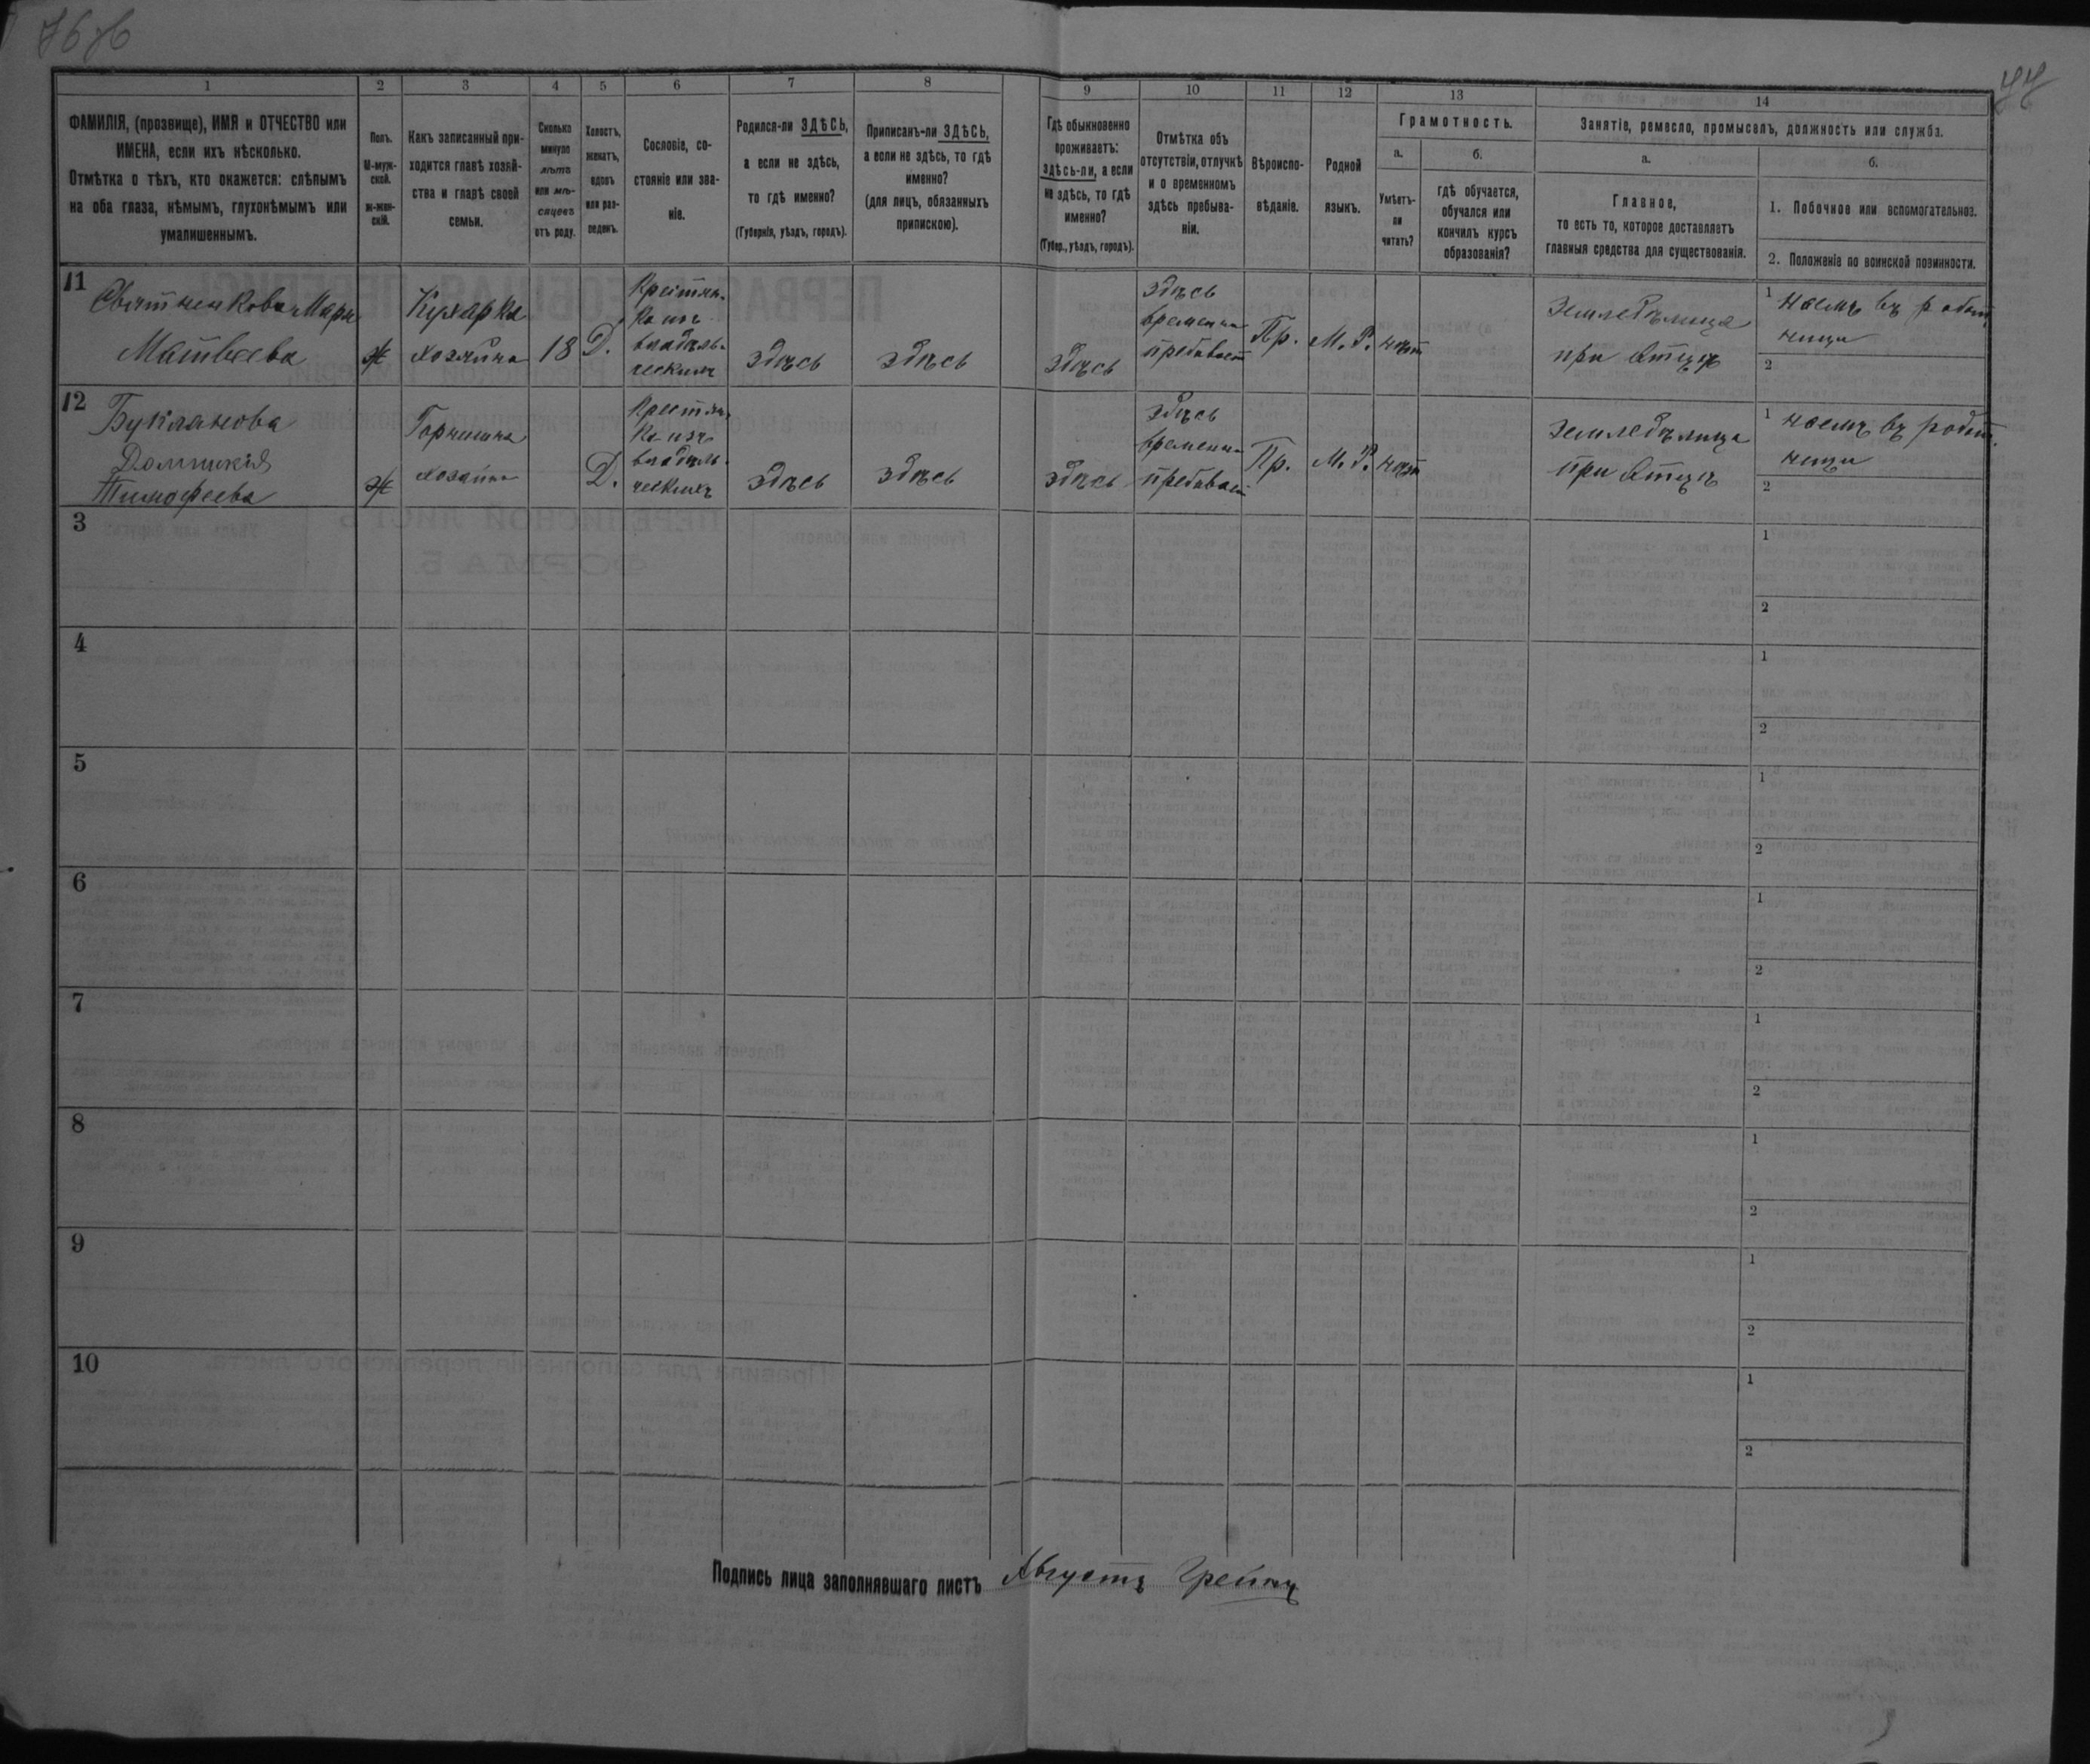 76 об
77
1
2
3
4
5
6
7
8
9
10
11
12
13
14
ФАМИЛІЯ, (прозвище), ИМЯ и ОТЧЕСТВО или
ИМЕНА, если ихъ нѣсколько.
Отмѣтка о тѣхъ, кто окажется: слѣпымъ
на оба глаза, нѣмымъ, глухонѣмымъ или
умалишеннымъ.
Полъ.
М-муж-
ской.
ж-жен-
скій.
Какъ записанный при-
ходится главѣ хозяй-
ства и главѣ своей
семьи.
Сколько
минуло
лѣтъ
или мѣ-
сяцевъ
отъ роду.
Холостъ,
женатъ,
вдовъ
или раз-
веденъ.
Сословіе, со-
стояніе или зва-
ніе.
Родился-ли ЗДѢСЬ,
а если не здѣсь,
то гдѣ именно?
(Губернія, уѣздъ, городъ).
Приписанъ-ли ЗДѢСЬ,
а если не здѣсь, то гдѣ
именно?
(для лицъ, обязанныхъ
припискою).
Гдѣ обыкновенно
проживаетъ:
здѣсь-ли, а если
не здѣсь, то гдѣ
именно?
(Губер., уѣздъ, городъ).
Отмѣтка объ
отсутствіи, отлучкѣ
и о временномъ
здѣсь пребыва-
ніи.
Вѣроиспо-
вѣданіе.
Родной
языкъ.
Грамотность.
а.
Умѣетъ-
ли
читать?
б.
гдѣ обучается,
обучался или
кончилъ курсъ
образованія?
Занятіе, ремесло, промыселъ, должность или служба.
а.
Главное,
то есть то, которое доставляетъ
главныя средства для существованія.
б.
1. Побочное или вспомогательное.
2. Положеніе по воинской повинности.
11
Матвеева
ж
Кухарка
хозяина
18
Д.
Крестьян-
ка изъ
владѣль-
ческихъ
здѣсь
здѣсь
здѣсь
здѣсь
временно
пребывает
Пр.
М. Р.
нѣт
Земледѣлица
при Отцѣ
1
наемъ въ работ-
ницы
2
12
Букланова
Домникія
Тимофеева
ж
Горнична
хозаина
Д.
Крестьян-
ка изъ
владѣль-
ческихъ
здѣсь
здѣсь
здѣсь
здѣсь
временно
пребывает
Пр.
М. Р.
нѣт
Земледѣлица
при Отцѣ
1
наемъ въ работ-
ницы
2
3
1
2
4
1
2
5
1
2
6
1
2
7
1
2
8
1
2
9
1
2
10
1
2
Подпись лица заполнявшаго листъ Августъ